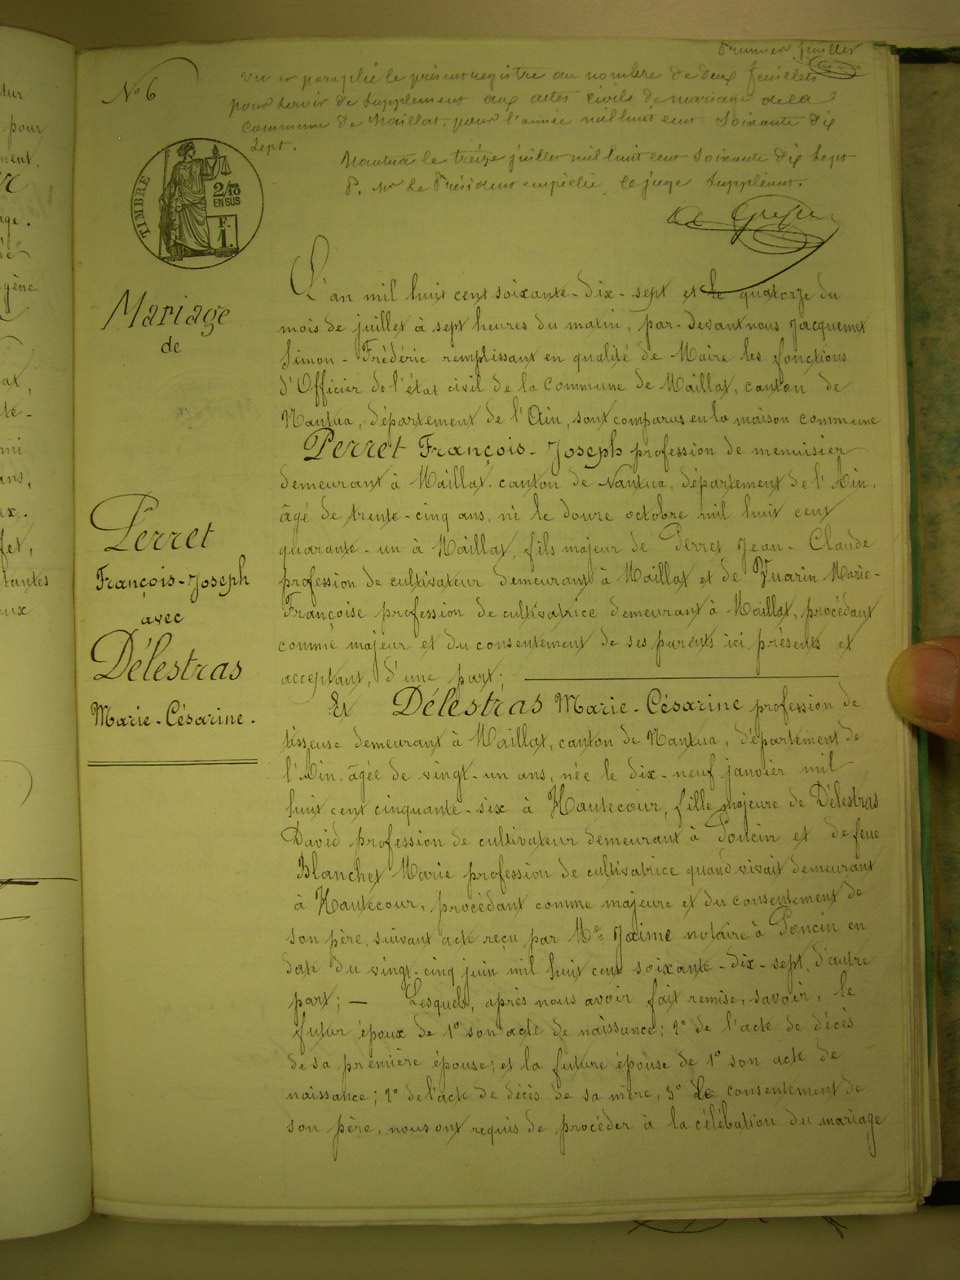 Premier feuillet
N° 6
Vu et paraphé le présent registre au nombre de deux feuillets
pour servir de supplément aux actes civils de mariage de la
Commune de Maillat, pour l'année mil huit cent soixante dix
sept.
Nantua le treize juillet mil huit cent soixante dix sept
P. Mr le Président empêché, le juge suppléant.
TIMBRE
2/10
EN SUS
F.
1.
Mariage
de
Perret
François-Joseph
avec
Délestras
Marie-Césarine.
L'an mil huit cent soixante-dix-sept et le quatorze du
mois de juillet à sept heures du matin, par-devant nous Jacquemet
Simon-Frédéric remplissant en qualité de Maire les fonctions
d'Officier de l'état civil de la Commune de Maillat, canton de
Nantua, département de l'Ain, sont comparus en la maison commune
Perret François-Joseph profession de menuisier
demeurant à Maillat, canton de Nantua, département de l'Ain,
âgé de trente-cinq ans, né le douze octobre mil huit cent
quarante-un à Maillat, fils majeur de Perret Jean-Claude
profession de cultivateur demeurant à Maillat et de Vuarin Marie-
Françoise profession de cultivatrice demeurant à Maillat, procédant
comme majeur et du consentement de ses parents ici présents et
acceptant, d'une part;
Et Délestras Marie-Césarine profession de
tisseuse demeurant à Maillat, canton de Nantua, département de
l'Ain, âgée de vingt-un ans, née le dix-neuf janvier mil
huit cent cinquante-six à Hautecour, fille majeure de Délestras
David profession de cultivateur demeurant à Poncin et de feue
Blanchet Marie profession de cultivatrice quand vivait demeurant
à Hautecour, procédant comme majeure et du consentement de
son père, suivant acte reçu par Me Jaime notaire à Poncin en
date du vingt-cinq juin mil huit cent soixante-dix-sept, d'autre
part; — Lesquels, après nous avoir fait remise, savoir, le
futur époux de 1° son acte de naissance; 2° de l'acte de décès
de sa première épouse; et la future épouse de 1° son acte de
naissance; 2° de l'acte de décès de sa mère, 3° le consentement de
son père, nous ont requis de procéder à la célébation du mariage